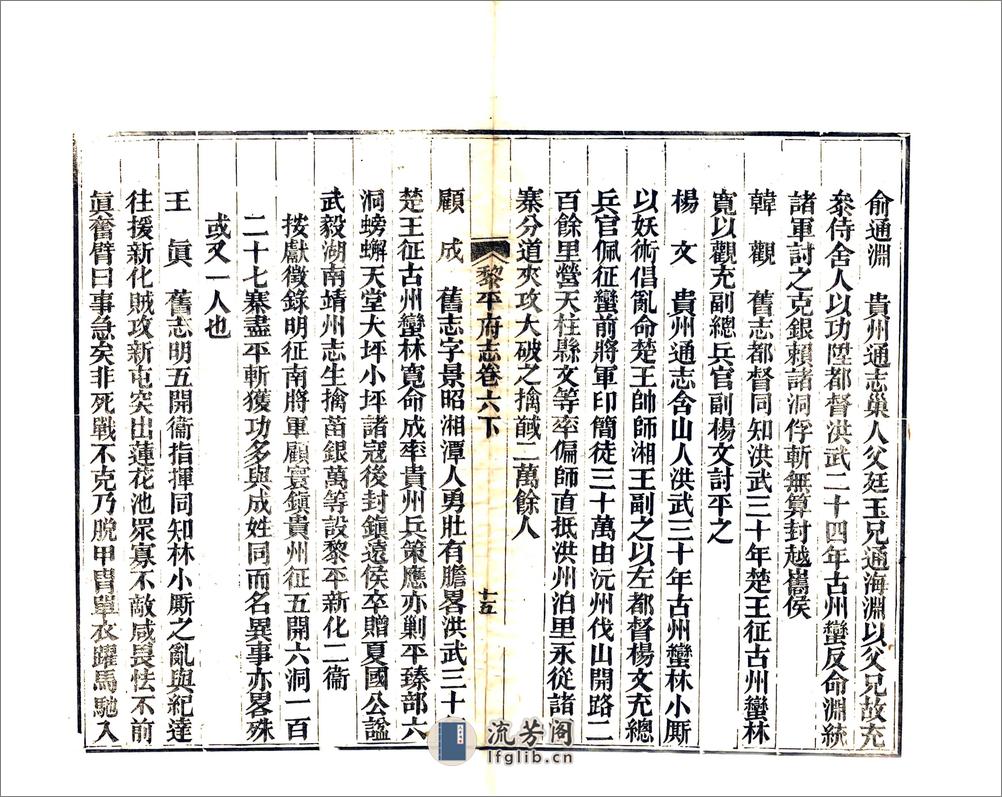 俞通淵　貴州通志巢人父廷玉兄通海淵以父兄故充
叅侍舍人以功陞都督洪武二十四年古州蠻反命淵統
諸軍討之克銀賴諸洞俘斬無算封越嶲侯
韓　觀　舊志都督同知洪武三十年楚王征古州蠻林
寬以觀充副總兵官副楊文討平之
楊　文　貴州通志含山人洪武三十年古州蠻林小厮
以妖術倡亂命楚王帥師湘王副之以左都督楊文充總
兵官佩征蠻前將軍印簡徒三十萬由沅州伐山開路二
百餘里營天柱縣文等率偏師直抵洪州泊里永從諸
寨分道夾攻大破之擒馘二萬餘人
黎平府志卷六下
十五
顧　成　舊志字景昭湘潭人勇壯有膽畧洪武三十
楚王征古州蠻林寬命成率貴州兵策應亦剿平臻部六
洞螃蠏天堂大坪小坪諸寇後封鎮遠侯卒贈夏國公謚
武毅湖南靖州志生擒苗銀萬等設黎平新化二衞
按獻徵錄明征南將軍顧寰鎮貴州征五開六洞一百
二十七寨盡平斬獲功多與成姓同而名異事亦畧殊
或又一人也
王　眞　舊志明五開衞指揮同知林小厮之亂與紀達
往援新化賊攻新屯突出蓮花池眾寡不敵咸畏怯不前
眞奮臂曰事急矣非死戰不克乃脫甲冑單衣躍馬馳入
流芳阁
lfglib.cn